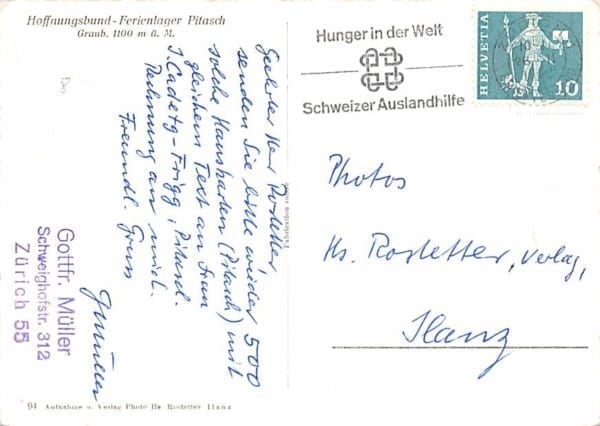 Hoffnungsbund-Ferienlager Pitasch
Graub. 1100 m ü. M.
Geehrter Herr Rostetter,
senden Sie bitte wieder 500
solche Hauskarten (Pitasch) mit
gleichem Text an Frau
J. Cadetg-Frigg, Pitasch.
Rechnung an mich.
Freundl. Gruss
GMüller
Gottfr. Müller
Schweighofstr. 312
Zürich 55
94 Aufnahme u. Verlag Photo Hs Rostetter Ilanz
Hunger in der Welt
Schweizer Auslandhilfe
HELVETIA
10
Photos
Hs. Rostetter, Verlag,
Ilanz